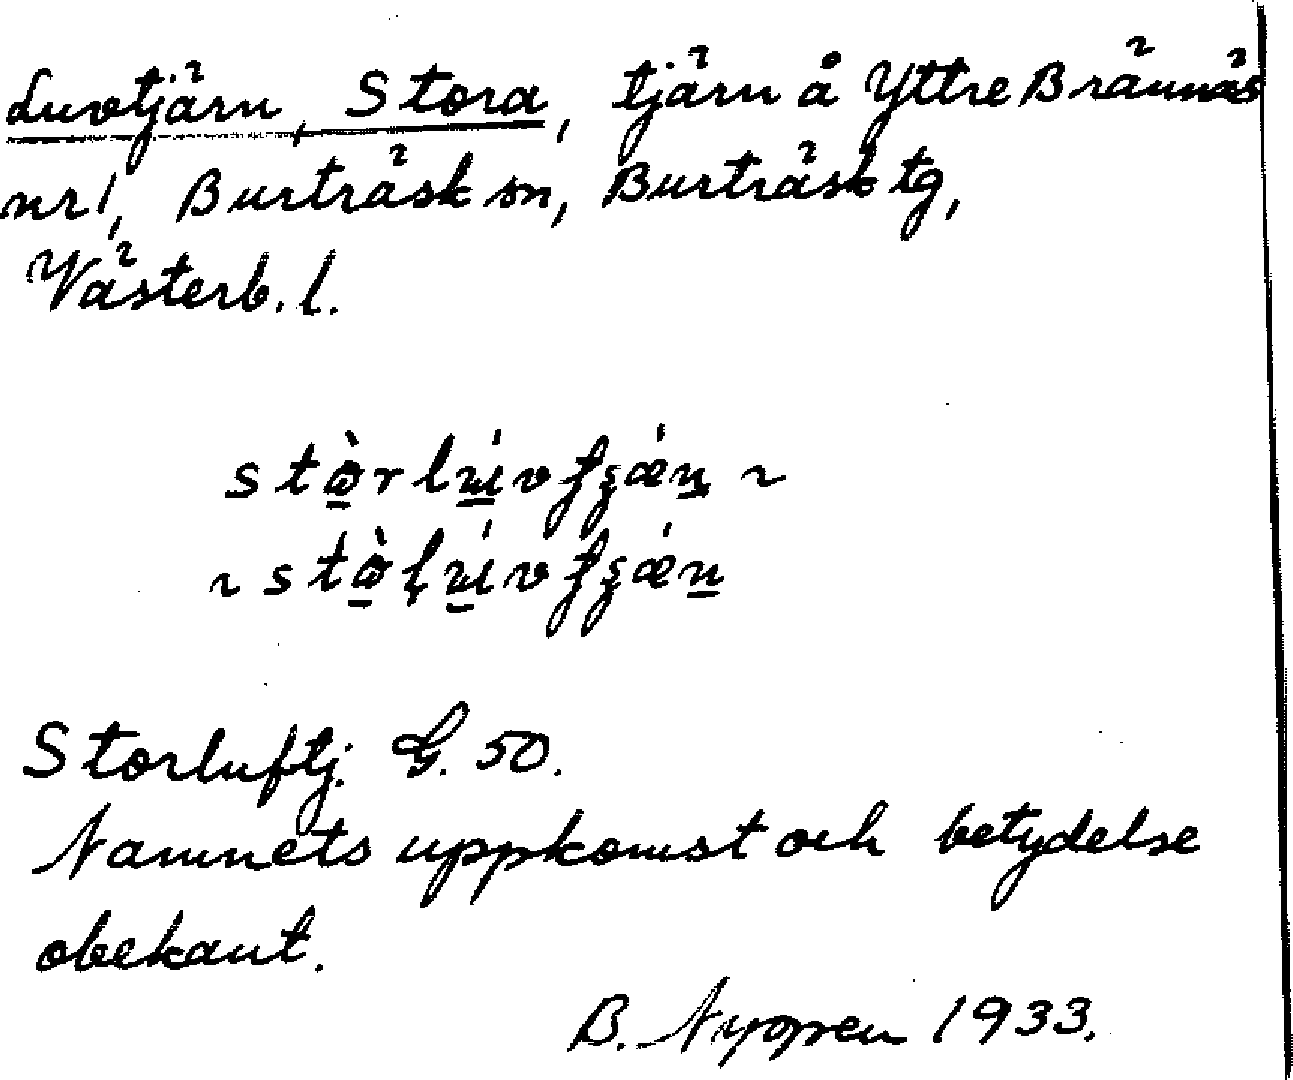 Luvtjärn, Stora, tjärn å Yttre Brännäs
nr 1, Burträsk sn, Burträsk tg,
Västerb. l.
Storluftj. G. 50.
Namnets uppkomst och betydelse
obekant.
B. Nyopren 1933.